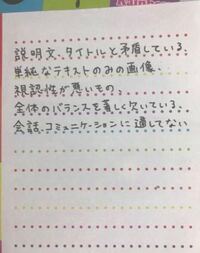 説明文、タイトルと矛盾している、
単純なテキストのみの画像、
視認性が悪いもの、
全体のバランスを著しく欠いている、
会話、コミュニケーションに適してない